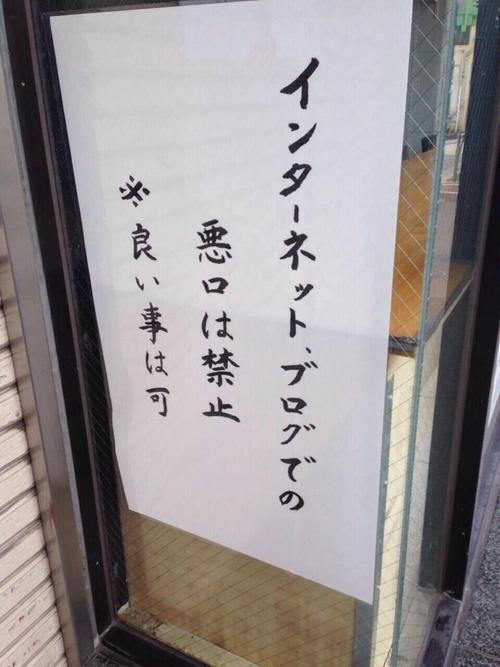 インターネット、ブログでの
悪口は禁止
※良い事は可